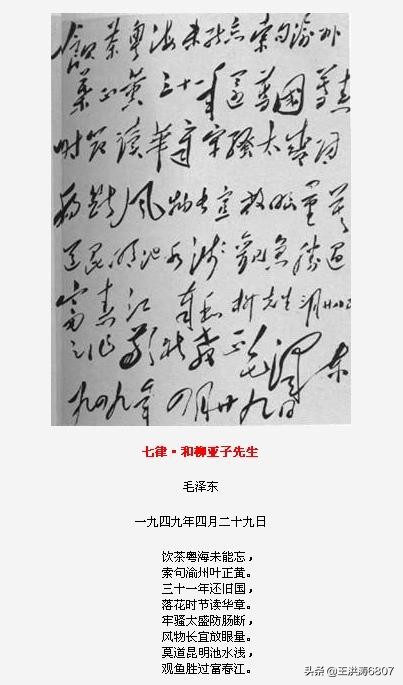 飲茶粤海未能忘索句渝州
葉正黄三十一年還舊國落花
时节读華章牢騷太盛防
腸斷風物长宜放眼量莫
道昆明池水浅觀魚勝過
富春江 奉和柳先生三月廿八日
之作敬祈教正 毛澤东
一九四九年四月廿九日
七律·和柳亚子先生
毛泽东
一九四九年四月二十九日
饮茶粤海未能忘，
索句渝州叶正黄。
三十一年还旧国，
落花时节读华章。
牢骚太盛防肠断，
风物长宜放眼量。
莫道昆明池水浅，
观鱼胜过富春江。
头条 @王洪涛6807